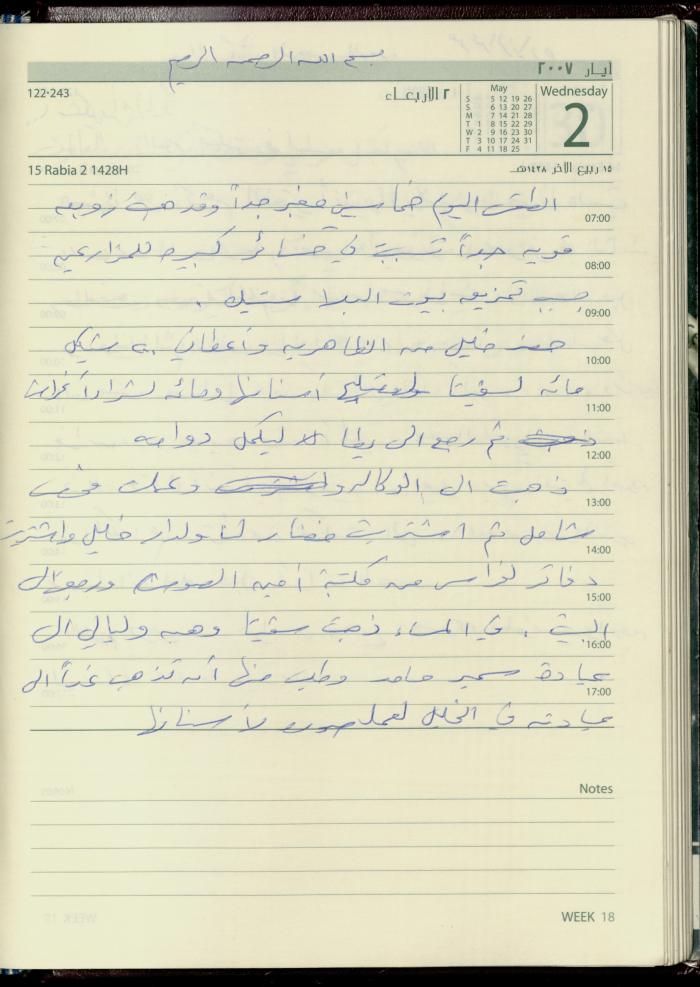 بسم الله الرحمن الرحيم
أيار ٢٠٠٧
122-243
٢ الأربعاء
May
S 5 12 19 26
S 6 13 20 27
M 7 14 21 28
T 1 8 15 22 29
W 2 9 16 23 30
T 3 10 17 24 31
F 4 11 18 25
Wednesday
2
15 Rabia 2 1428H
١٥ ربيع الآخر ١٤٢٨هـ
الطقس اليوم خماسيني مغبر جداً وقد هبت زوبعه
07:00
قويه جداً تسببت في خسائر كبيره للمزارعين
08:00
حسب تمزيق بيوت البلاستيك .
09:00
حضر خليل من الظاهريه وأعطاني شيكل
10:00
مائه لسفيتا أسنانها ومائه لشراء أغراض
11:00
ثم رجع الى يطا ليكمل دوامه
12:00
ذهبت الى الوكاله وعملت
13:00
شامل ثم اشتريت خضار لنا ولدار خليل واشتريت
14:00
دفاتر لفراس من مكتبة أمين الصوص ورجعت الى
15:00
البيت . في المساء ذهبت سفيتا وهبه وليالي الى
16:00
عيادة سمير حامد وطلب منها أن تذهب غداً الى
17:00
عيادته في الخليل لعمل صوره لأسنانها
Notes
WEEK 18